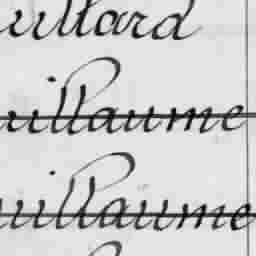 uillard
uillaume
uillaume